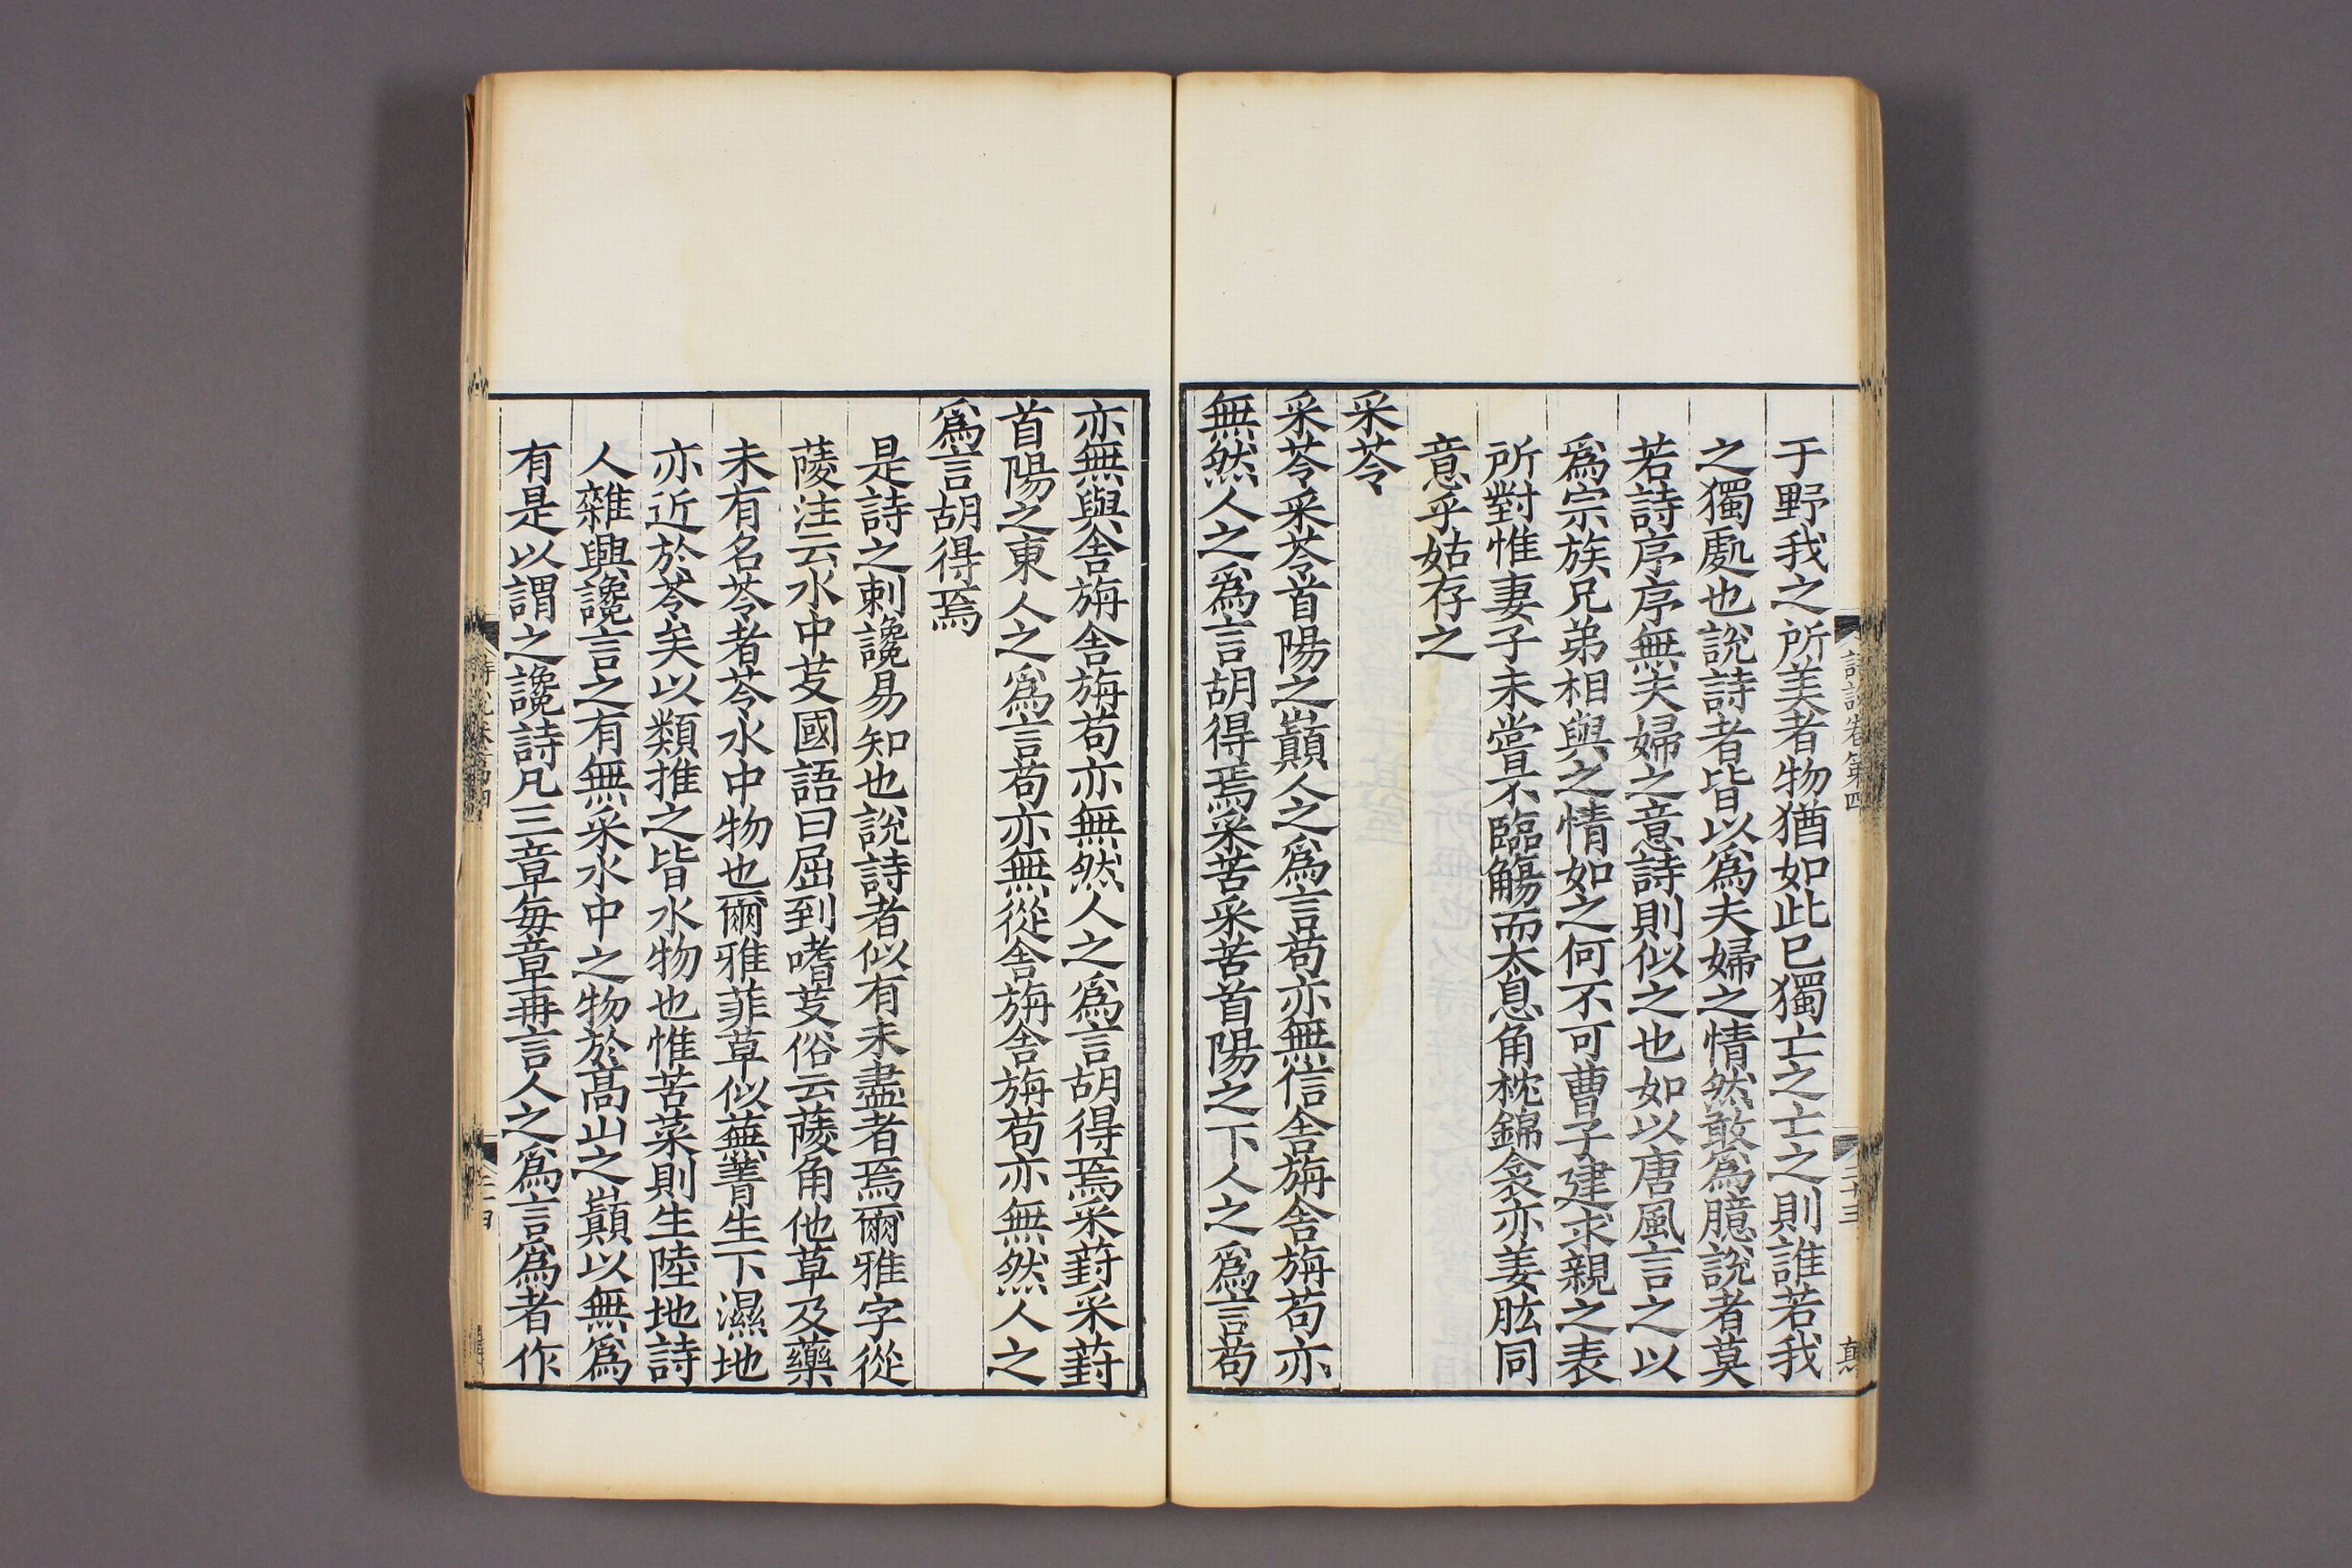 詩說卷第四
二十三
于野我之所美者物猶如此已獨亡之士之則誰若我
之獨處也說詩者皆以爲夫婦之情然敢爲臆說者莫
若詩序序無夫婦之意詩則似之也如以唐風言之以
爲宗族兄弟相與之情如之何不可曹子建求親之表
所對惟妻子未嘗不臨觴而太息角枕錦衾亦姜肱同
意乎姑存之
采苓
采苓采苓首陽之巔人之爲言苟亦無信舎旃舎旃苟亦
無然人之爲言胡得焉采苦采苦首陽之下人之爲言苟
亦無與舎旃舎旃苟亦無然人之爲言胡得焉采葑采葑
首陽之東人之爲言苟亦無從舎旃舎旃苟亦無然人之
爲言胡得焉
是詩之刺讒易知也說詩者似有未盡者焉爾雅字從
蔆注云水中芰國語曰屈到嗜芰俗云蔆角他草及藥
未有名苓者苓水中物也爾雅菲草似蕪菁生下濕地
亦近於苓矣以類推之皆水物也惟苦菜則生陸地詩
人雜興讒言之有無采水中之物於髙山之巔以無爲
有是以謂之讒詩凡三章每章再言人之爲言爲者作